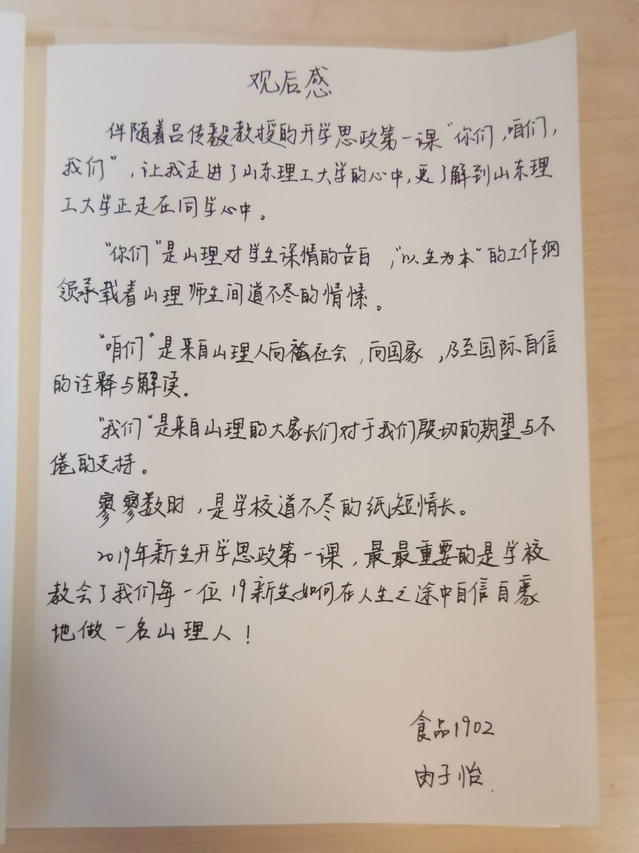 观后感
伴随着吕传毅教授的开学思政第一课“你们，咱们，
我们”，让我走进了山东理工大学的心中，更了解到山东理
工大学正走在同学心中。
“你们”是山理对学生深情的告白，“以生为本”的工作纲
领承载着山理师生间道不尽的情愫。
“咱们”是来自山理人向社会，向国家，乃至国际自信
的诠释与解读。
“我们”是来自山理的大家长们对于我们殷切的期望与不
倦的支持。
寥寥数时，是学校道不尽的纸短情长。
2019年新生开学思政第一课，最最重要的是学校
教会了我们每一位19新生如何在人生之途中自信自豪
地做一名山理人！
食品1902
由子怡